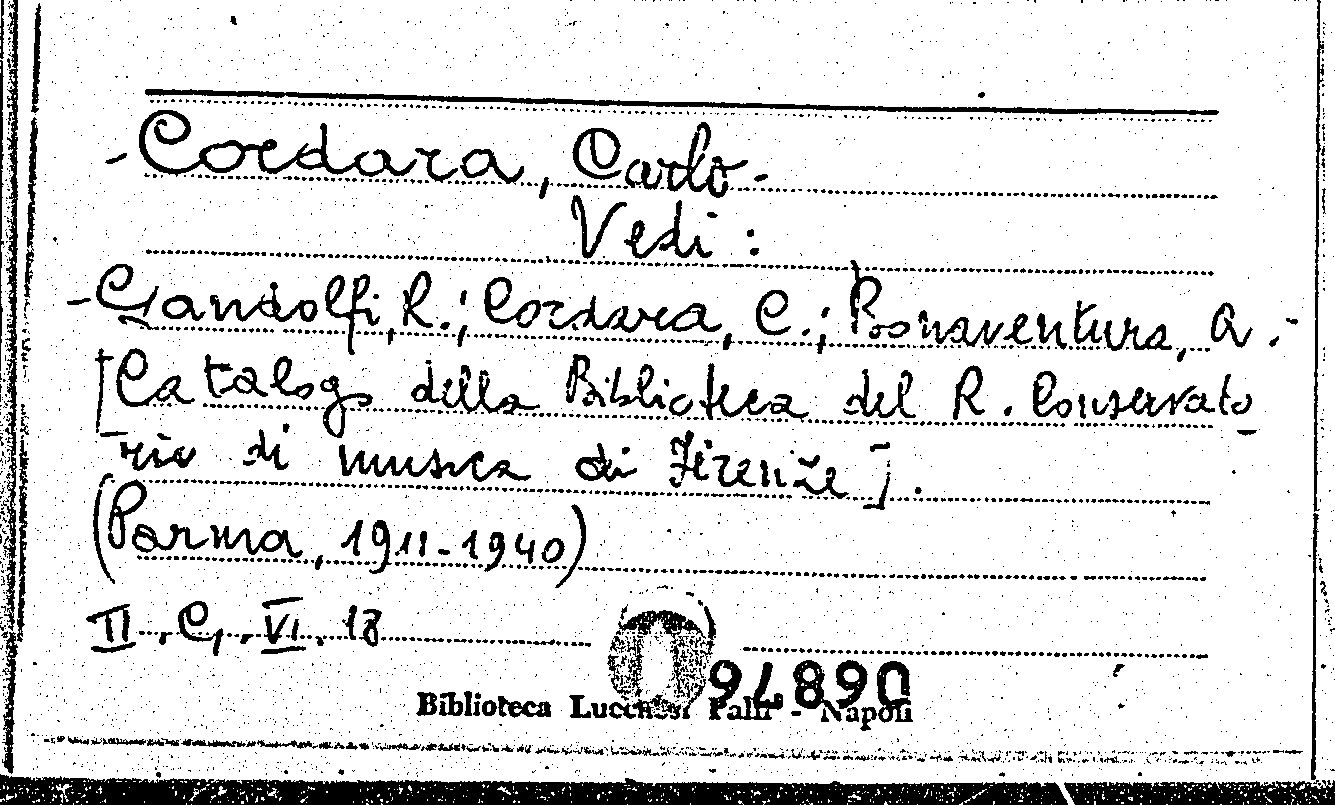 - Cordara, Carlo -
Vedi :
- Gandolfi, R.; Cordara, C.; Bonaventura, A. -
[Catalogo della Biblioteca del R. Conservato
rio di musica di Firenze].
(Parma, 1911-1940)
II. G. VI. 18
Biblioteca Lucchesi Palli - Napoli